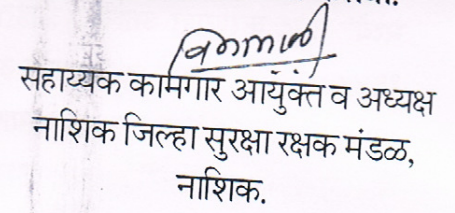 सहाय्यक कामगार आयुक्त व अध्यक्ष
नाशिक जिल्हा सुरक्षा रक्षक मंडळ,
नाशिक.